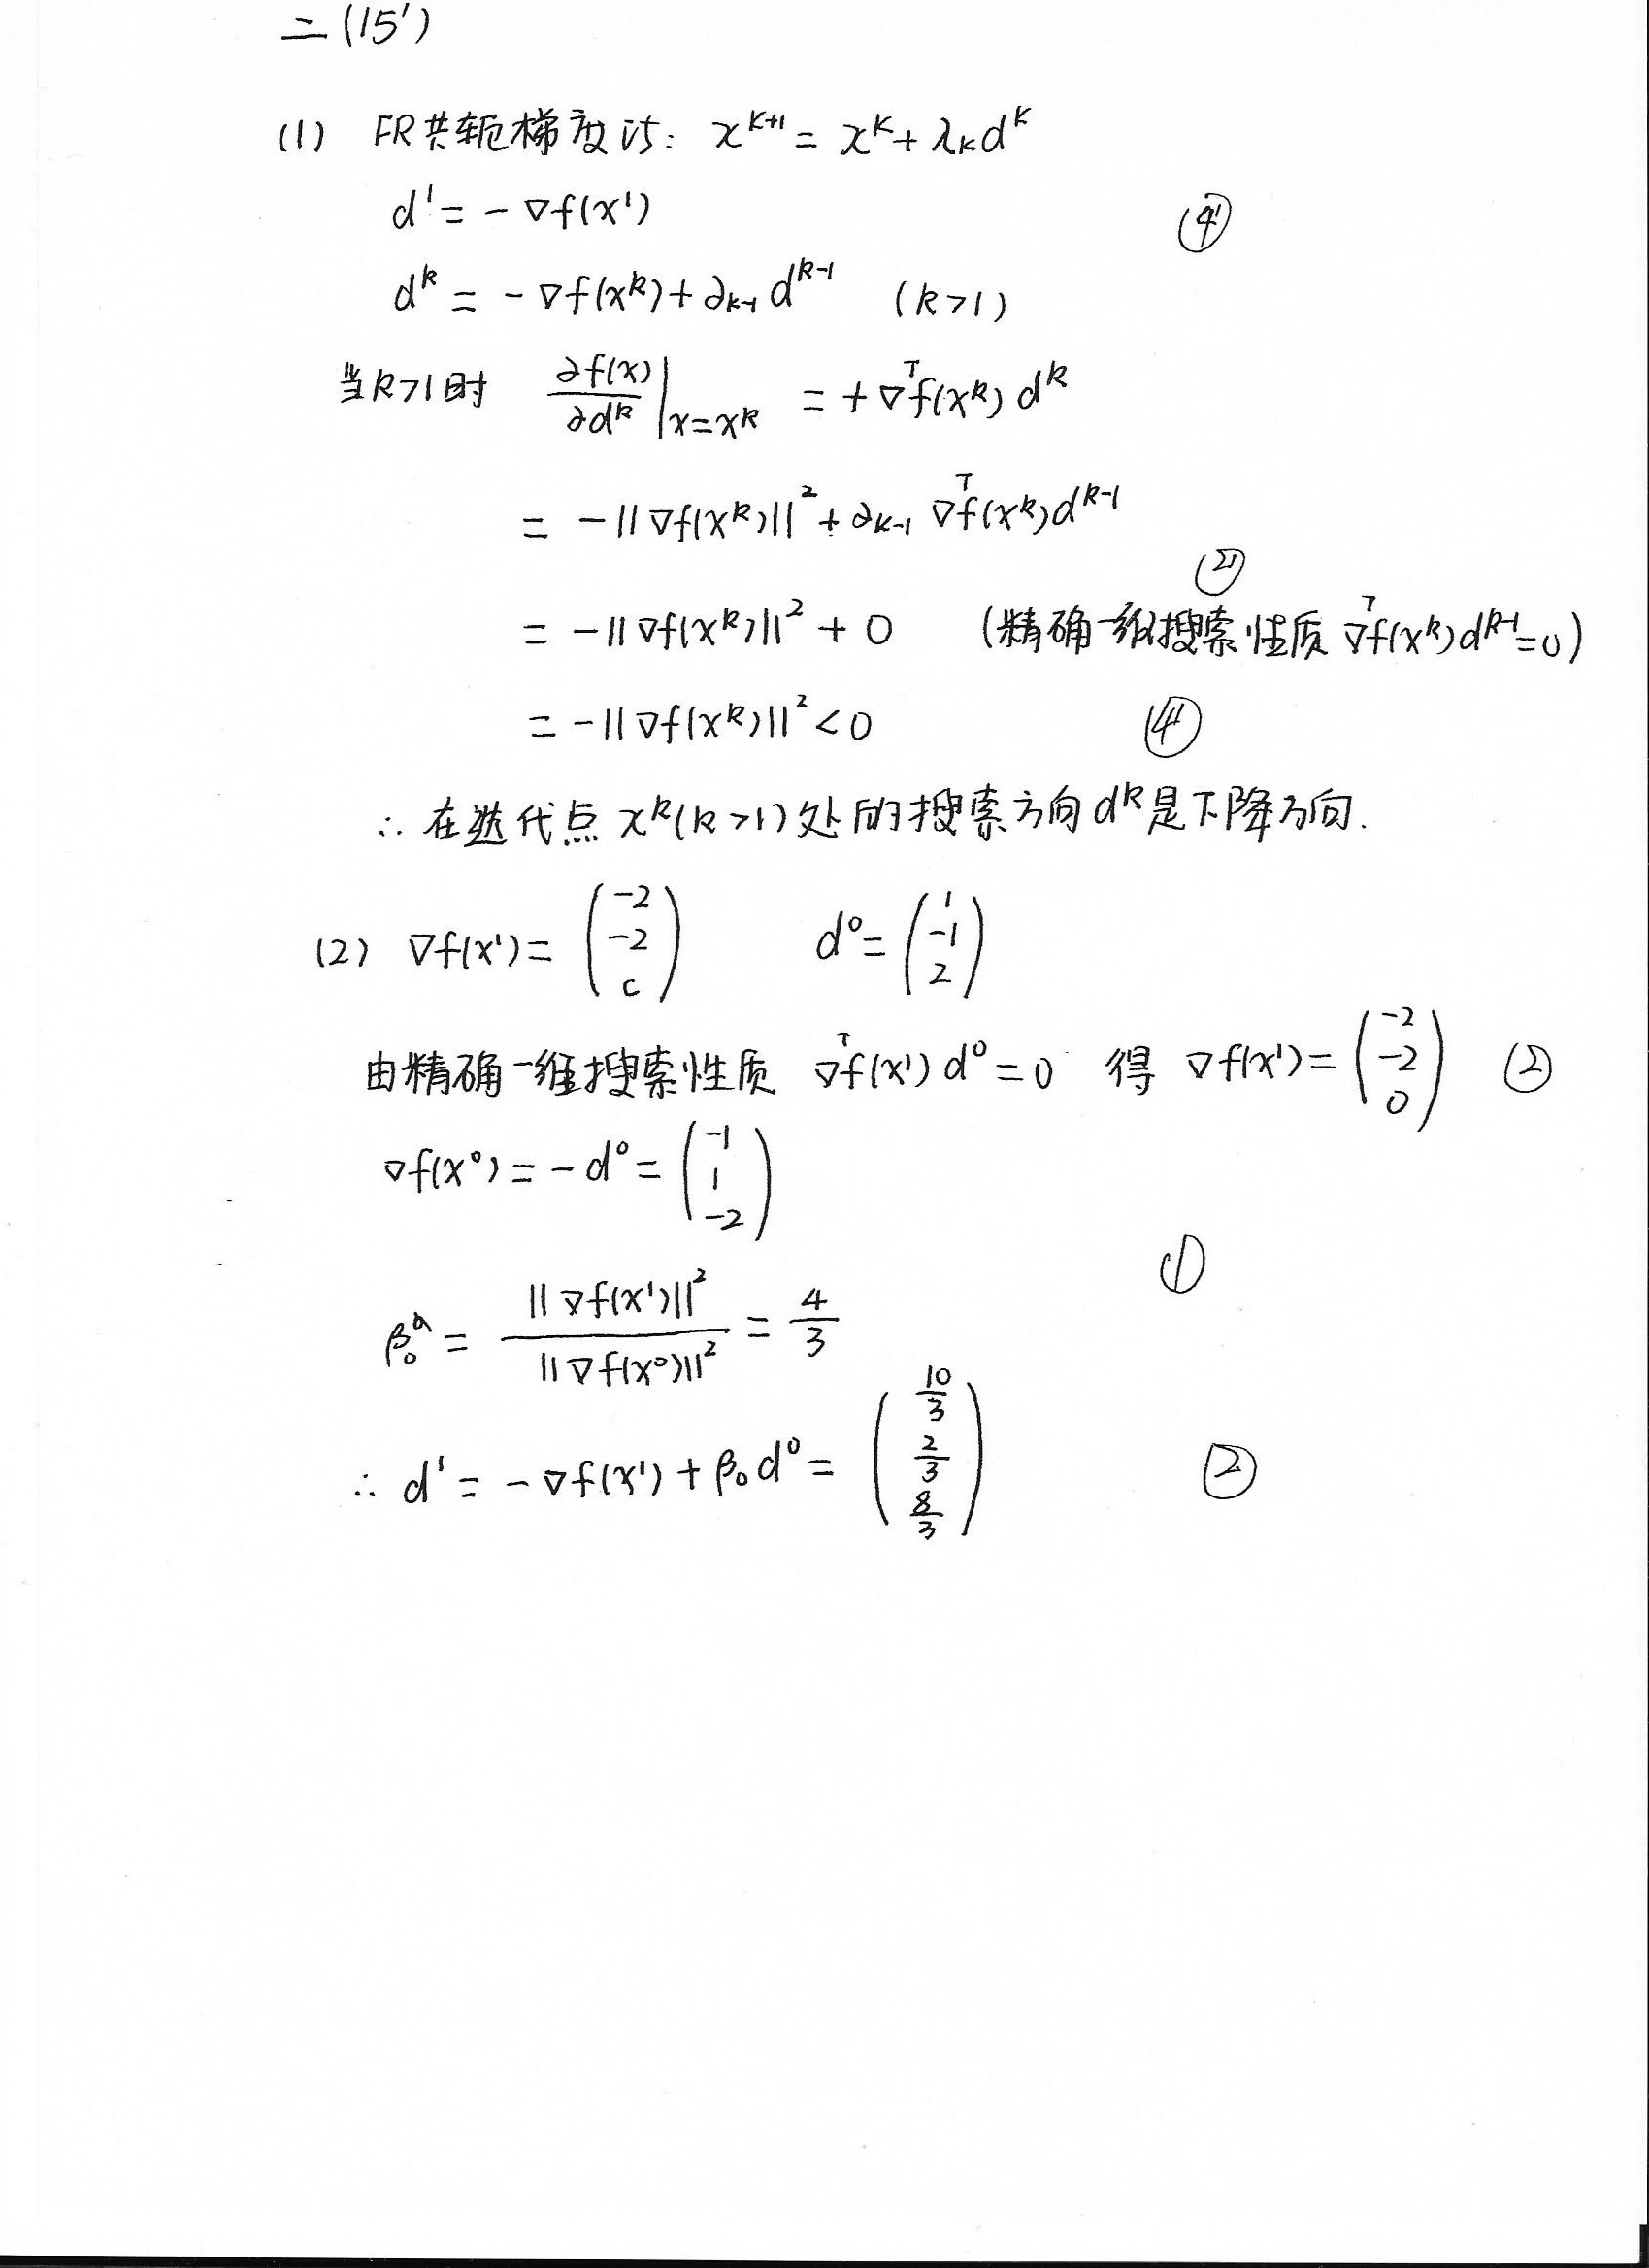 二(15')
(1) FR共轭梯度法: x^{k+1} = x^k + λ_k d^k
d^1 = -∇f(x^1)
④'
d^k = -∇f(x^k) + ∂_{k-1} d^{k-1} (k>1)
当k>1时 ∂f(x)/∂d^k |_{x=x^k} = +∇^T f(x^k) d^k
= -||∇f(x^k)||^2 + ∂_{k-1} ∇^T f(x^k) d^{k-1}
②'
= -||∇f(x^k)||^2 + 0 (精确一维搜索性质 ∇^T f(x^k) d^{k-1} = 0)
= -||∇f(x^k)||^2 < 0 ④'
∴ 在迭代点 x^k (k>1) 处的搜索方向 d^k 是下降方向.
(2) ∇f(x^1) = (-2 -2 c) d^0 = (1 -1 2)
由精确一维搜索性质 ∇^T f(x^1) d^0 = 0 得 ∇f(x^1) = (-2 -2 0) ②
∇f(x^0) = -d^0 = (-1 1 -2)
①
β_0 = ||∇f(x^1)||^2 / ||∇f(x^0)||^2 = 4/3
∴ d^1 = -∇f(x^1) + β_0 d^0 = (10/3 2/3 8/3) ②